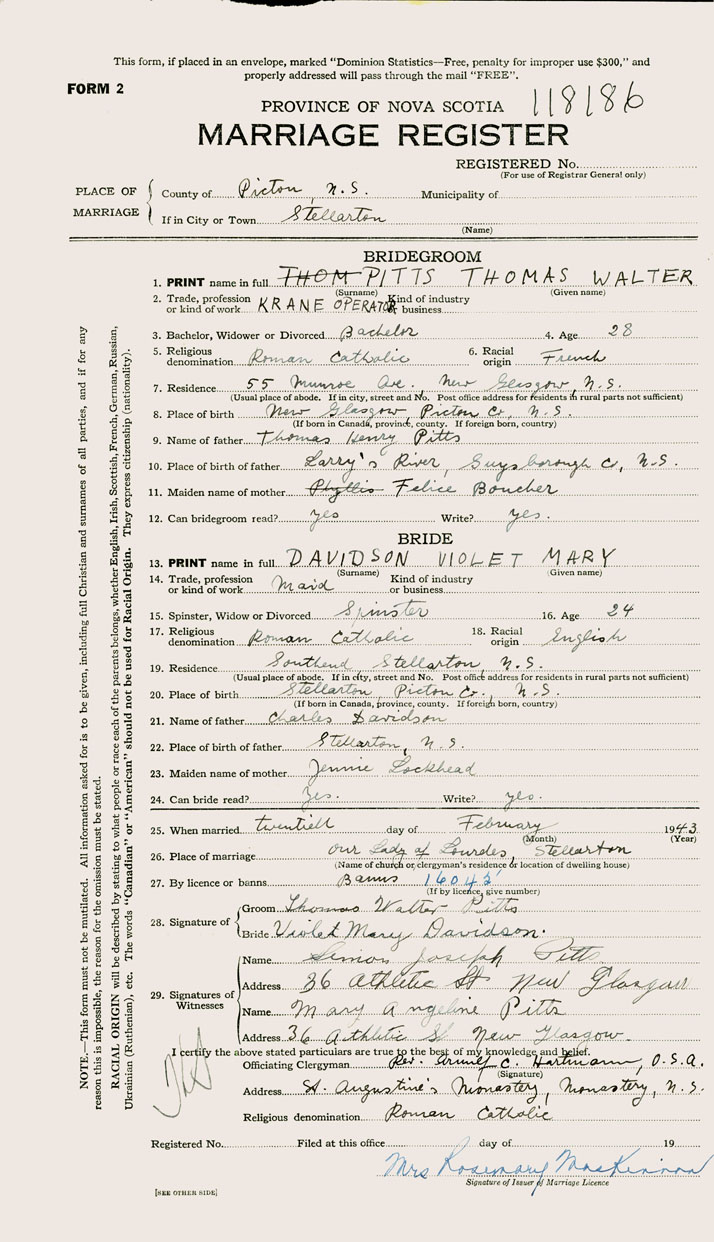 This form, if placed in an envelope, marked "Dominion Statistics—Free, penalty for improper use $300," and
properly addressed will pass through the mail "FREE".
FORM 2
118186
PROVINCE OF NOVA SCOTIA
MARRIAGE REGISTER
REGISTERED No.
(For use of Registrar General only)
PLACE OF MARRIAGE
County of Picton, N.S. Municipality of
If in City or Town Stellarton
(Name)
BRIDEGROOM
1. PRINT name in full THOM PITTS THOMAS WALTER
(Surname) (Given name)
2. Trade, profession or kind of work KRANE OPERATOR Kind of industry or business
3. Bachelor, Widower or Divorced Bachelor 4. Age 28
5. Religious denomination Roman Catholic 6. Racial origin French
7. Residence 55 Munroe Ave. New Glasgow, N.S.
(Usual place of abode. If in city, street and No. Post office address for residents in rural parts not sufficient)
8. Place of birth New Glasgow, Picton Co, N.S.
(If born in Canada, province, county. If foreign born, country)
9. Name of father Thomas Henry Pitts
10. Place of birth of father Larry's River, Guysborough Co, N.S.
11. Maiden name of mother Phyllis Felice Boucher
12. Can bridegroom read? yes Write? yes.
BRIDE
13. PRINT name in full DAVIDSON VIOLET MARY
(Surname) (Given name)
14. Trade, profession or kind of work Maid Kind of industry or business
15. Spinster, Widow or Divorced Spinster 16. Age 24
17. Religious denomination Roman Catholic 18. Racial origin English
19. Residence Southend Stellarton, N.S.
(Usual place of abode. If in city, street and No. Post office address for residents in rural parts not sufficient)
20. Place of birth Stellarton, Picton Co., N.S.
(If born in Canada, province, county. If foreign born, country)
21. Name of father Charles Davidson
22. Place of birth of father Stellarton, N.S.
23. Maiden name of mother Jennie Lockhead
24. Can bride read? Yes. Write? yes.
25. When married twentieth day of February 1943
(Month) (Year)
26. Place of marriage Our Lady of Lourdes, Stellarton
(Name of church or clergyman's residence or location of dwelling house)
27. By licence or banns Banns 16043
(If by licence, give number)
28. Signature of
Groom Thomas Walter Pitts
Bride Violet Mary Davidson.
29. Signatures of Witnesses
Name Simon Joseph Pitts
Address 36 Athletic St New Glasgow
Name Mary Angeline Pitts
Address 36 Athletic St New Glasgow.
I certify the above stated particulars are true to the best of my knowledge and belief.
Officiating Clergyman Rev. C. Hartmann, O.S.A.
(Signature)
Address St. Augustine's Monastery, Monastery, N.S.
Religious denomination Roman Catholic
Registered No. Filed at this office day of 19
Mrs Rosemary MacKinnon
Signature of Issuer of Marriage Licence
[SEE OTHER SIDE]
NOTE.—This form must not be mutilated. All information asked for is to be given, including full Christian and surnames of all parties, and if for any
reason this is impossible, the reason for the omission must be stated.
RACIAL ORIGIN will be described by stating to what people or race each of the parents belongs, whether English, Irish, Scottish, French, German, Russian,
Ukrainian (Ruthenian), etc. The words "Canadian" or "American" should not be used for Racial Origin. They express citizenship (nationality).